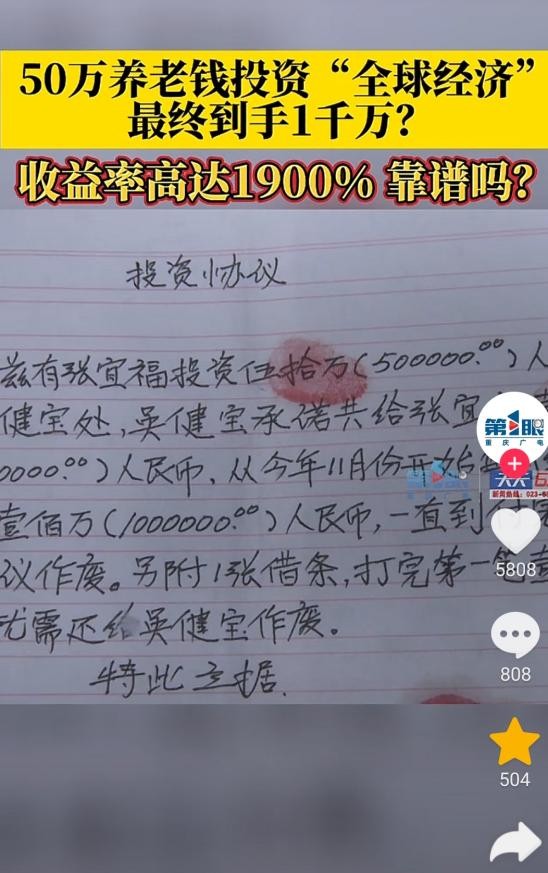 50万养老钱投资“全球经济”
最终到手1千万？
收益率高达1900% 靠谱吗？
投资协议
兹有张宜福投资伍拾万(500000.⁰⁰)人
健宝处，吴健宝承诺共给张宜
0000.⁰⁰)人民币，从今年11月份开始
壹佰万(1000000.⁰⁰)人民币，一直到付
议作废。另附1张借条，打完第一笔
尤需还给吴健宝作废。
特此立据.
第1眼
重庆广电
天天
新闻热线：023-6
5808
808
504